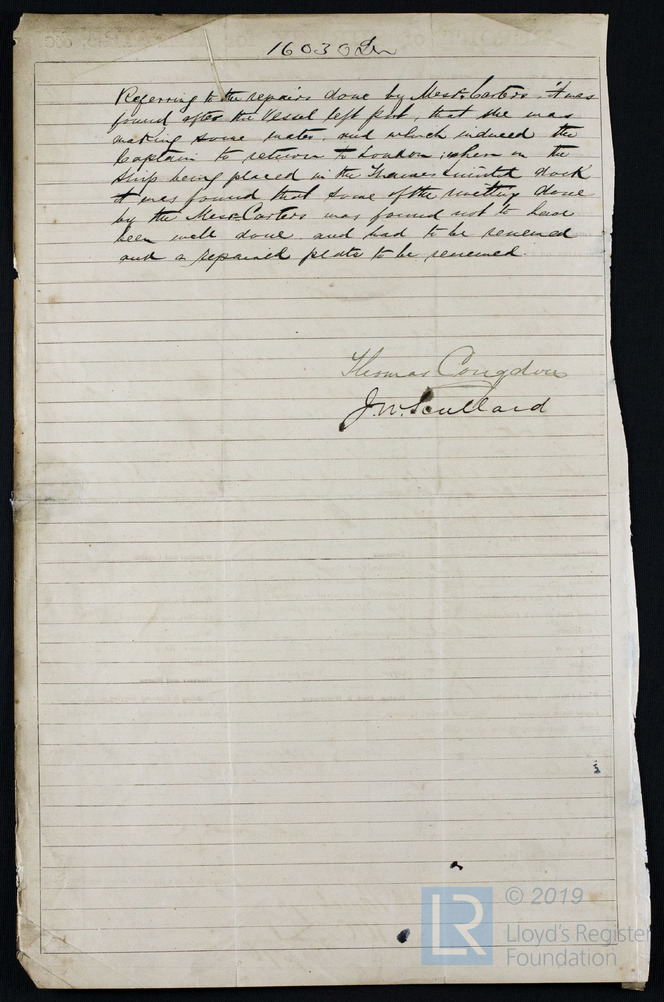 16030 Ln
Referring to the repairs done by Messrs Carters, it was
found after the Vessel left port, that she was
making some water, and which induced the
Captain to return to London; when on the
Ship being placed in the Thames dock
it was found that some of the rivetting done
by the Messrs Carters was found not to have
been well done, and had to be renewed
and a repaired plate to be renewed.
Thomas Congdon
J.W. Scullard
© 2019
LR
Lloyd's Register
Foundation